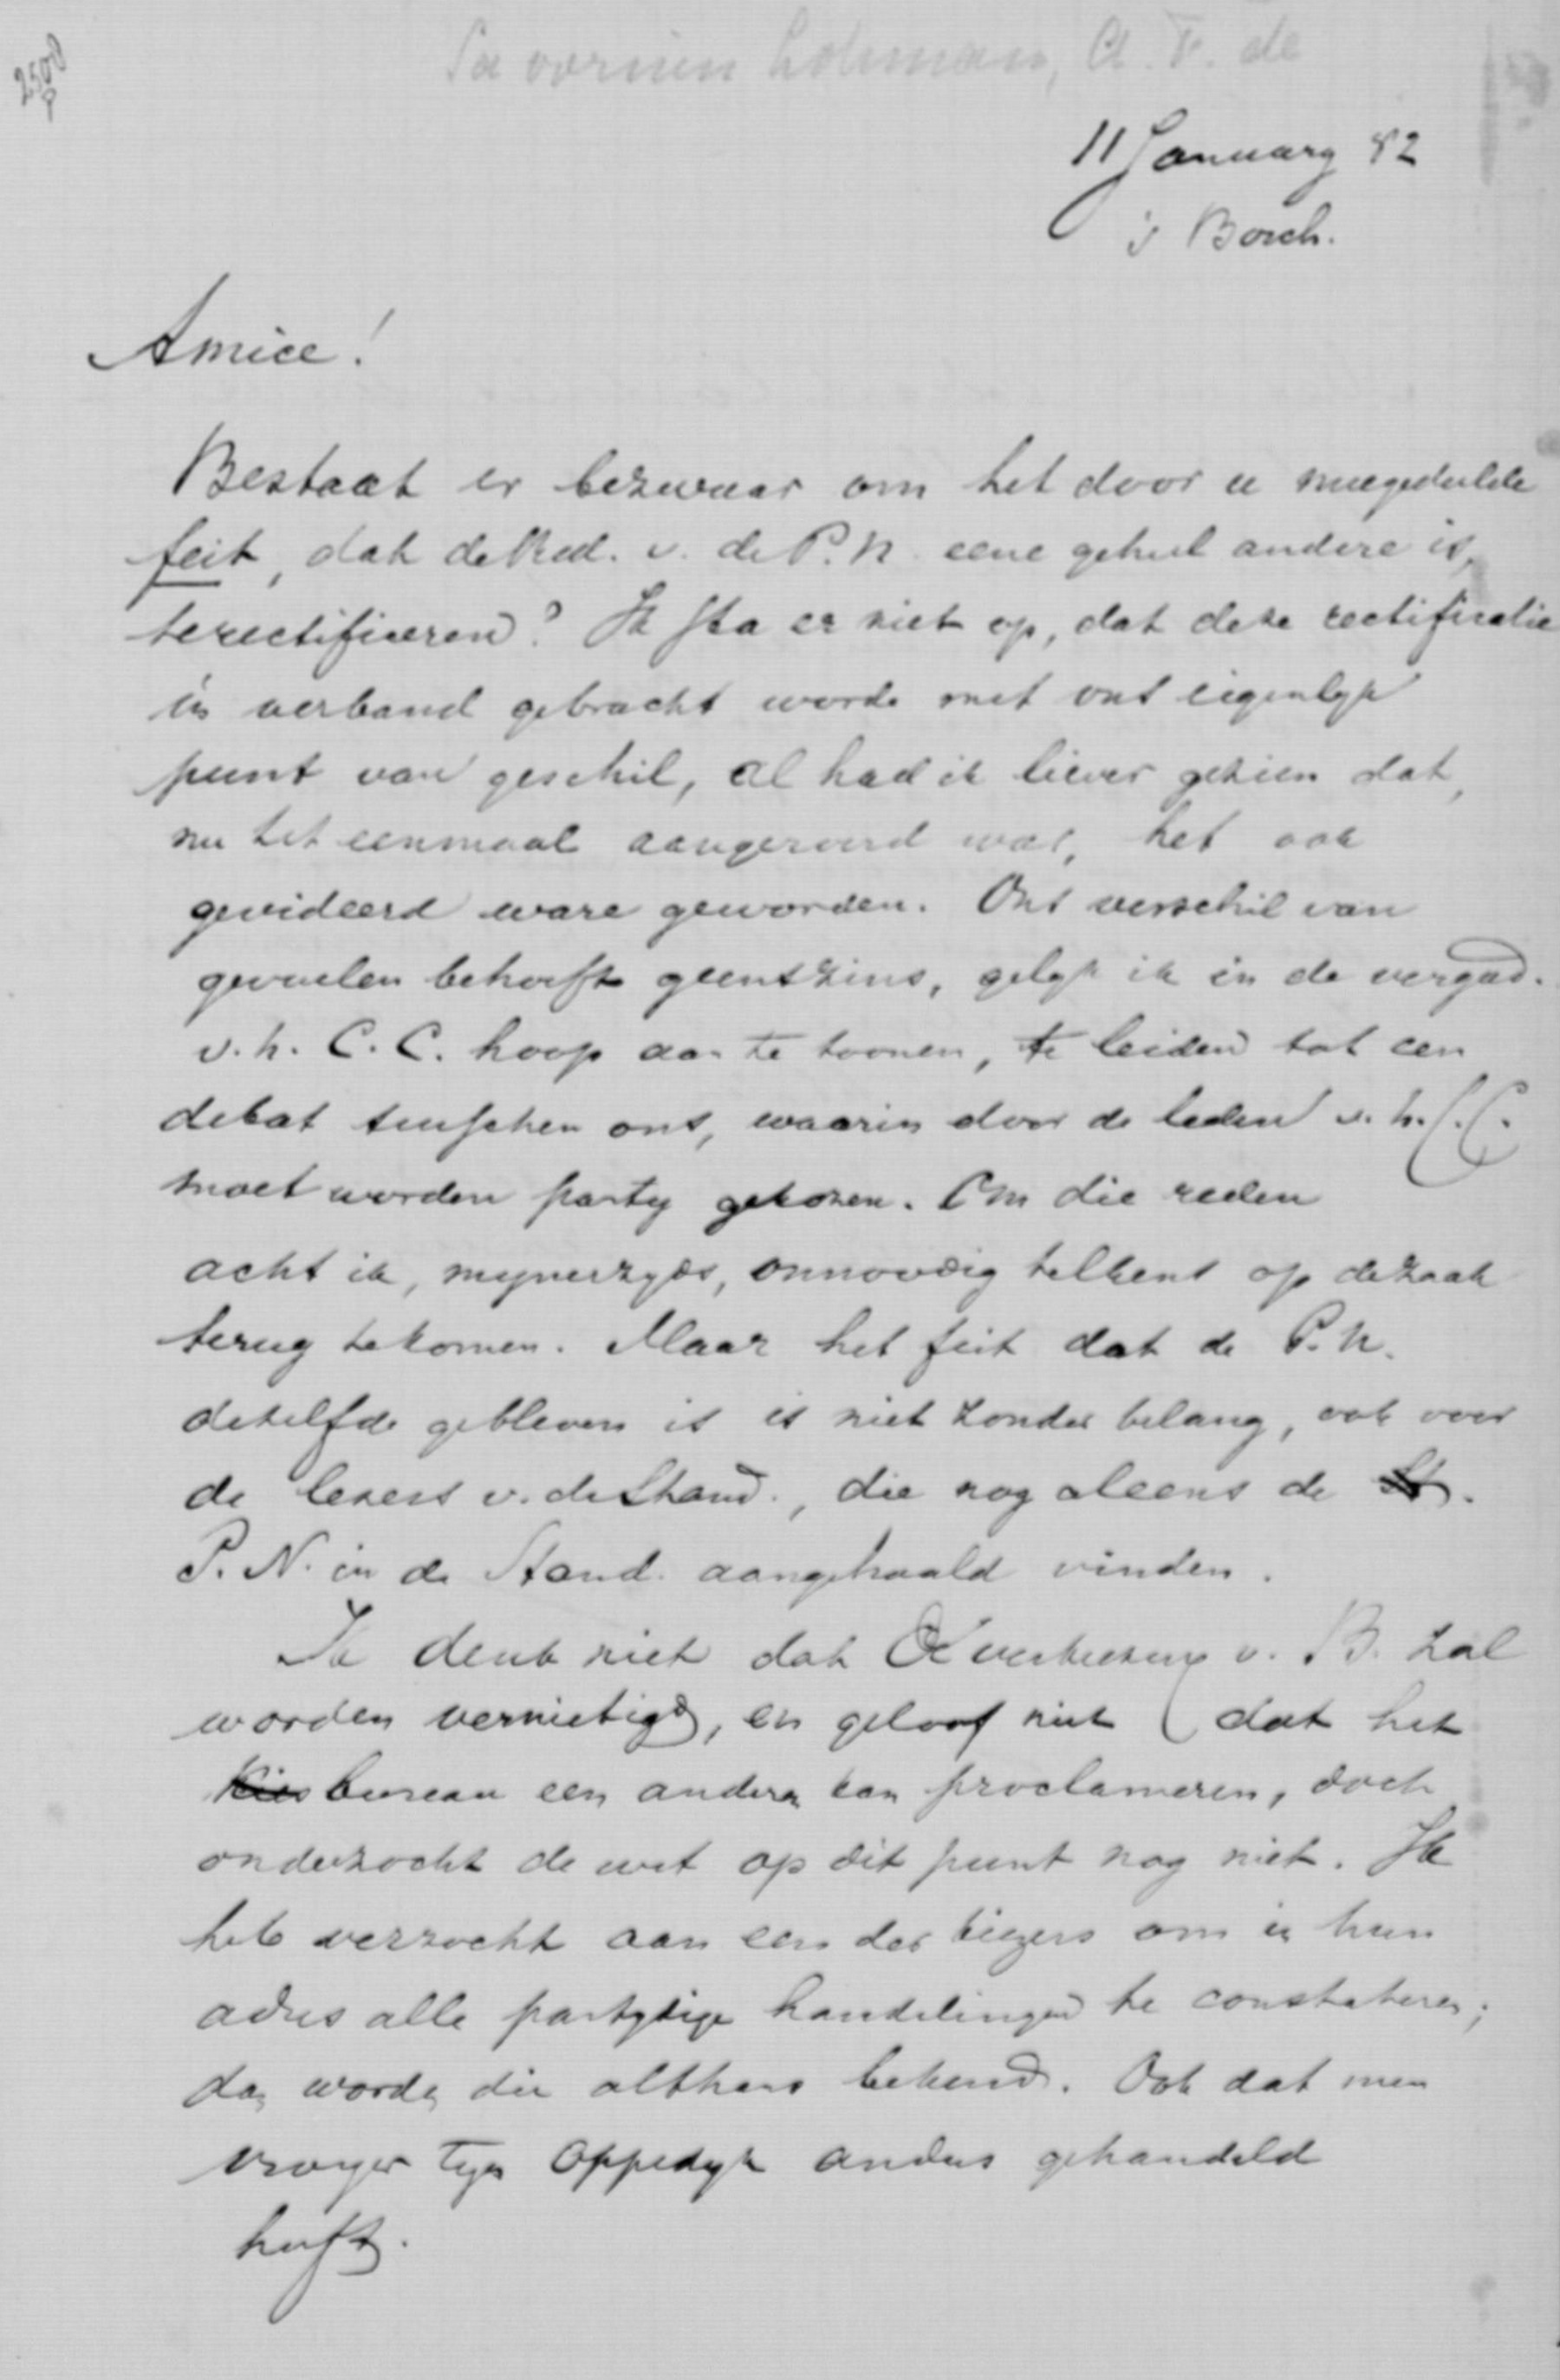 2500
Savornin Lohman, A. F. de
11 January 82
's Bosch.
Amice!
Bestaat er bezwaar om het door u meegedeelde
feit, dat de Red. v. de P.N. eene geheel andere is,
te rectificeren? Ik sta er niet op, dat deze rectificatie
in verband gebracht worde met ons eigenlyk
punt van geschil, al had ik liever gezien dat,
nu het eenmaal aangeroerd was, het ook
gevideerd ware geworden. Ons verschil van
gevoelen behoeft geenszins, gelyk ik in de vergad.
v.h. C.C. hoop aan te toonen, te leiden tot een
debat tusschen ons, waarin door de leden v.h. C.C.
moet worden party gekozen. Om die reden
acht ik, mynerzyds, onnoodig telkens op de zaak
terug te komen. Maar het feit dat de P.N.
dezelfde gebleven is is niet zonder belang, ook voor
de lezers v. de Stand., die nog aleens de St.
P.N. in de Stand. aangehaald vinden.
Ik denk niet dat de verkiezing v. B. zal
worden vernietigd, en geloof niet dat het
Kies bureau een andere kan proclameren, doch
onderzocht de wet op dit punt nog niet. Ik
heb verzocht aan een der kiezers om in hun
adres alle partydige handelingen te constateren;
dan worden die althans bekend. Ook dat men
vroeger tegen Oppedyk anders gehandeld
heeft.